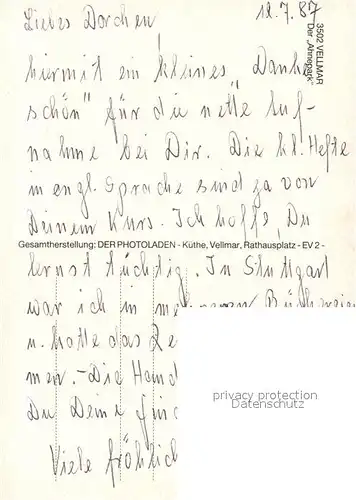 12.7.87
Liebes Dorchen,
hiermit ein kleines „Danke
schön" für die nette Auf-
nahme bei Dir. Die kl. Hefte
in engl. Sprache sind ja von
Deinem Kurs. Ich hoffe, Du
lernst tüchtig. In Stuttgart
war ich in mehreren Büchereien
u. hatte das
men. - Die Hand
Du Deine
Viele fröhlich
3502 VELLMAR
Der „Ahnepark"
Gesamtherstellung: DER PHOTOLADEN - Küthe, Vellmar, Rathausplatz - EV 2 -
privacy protection
Datenschutz